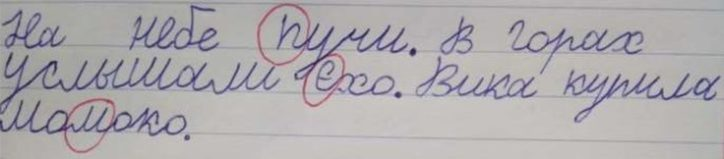 На небе пучи. В горах
услышали ехо. Вика купила
момоко.